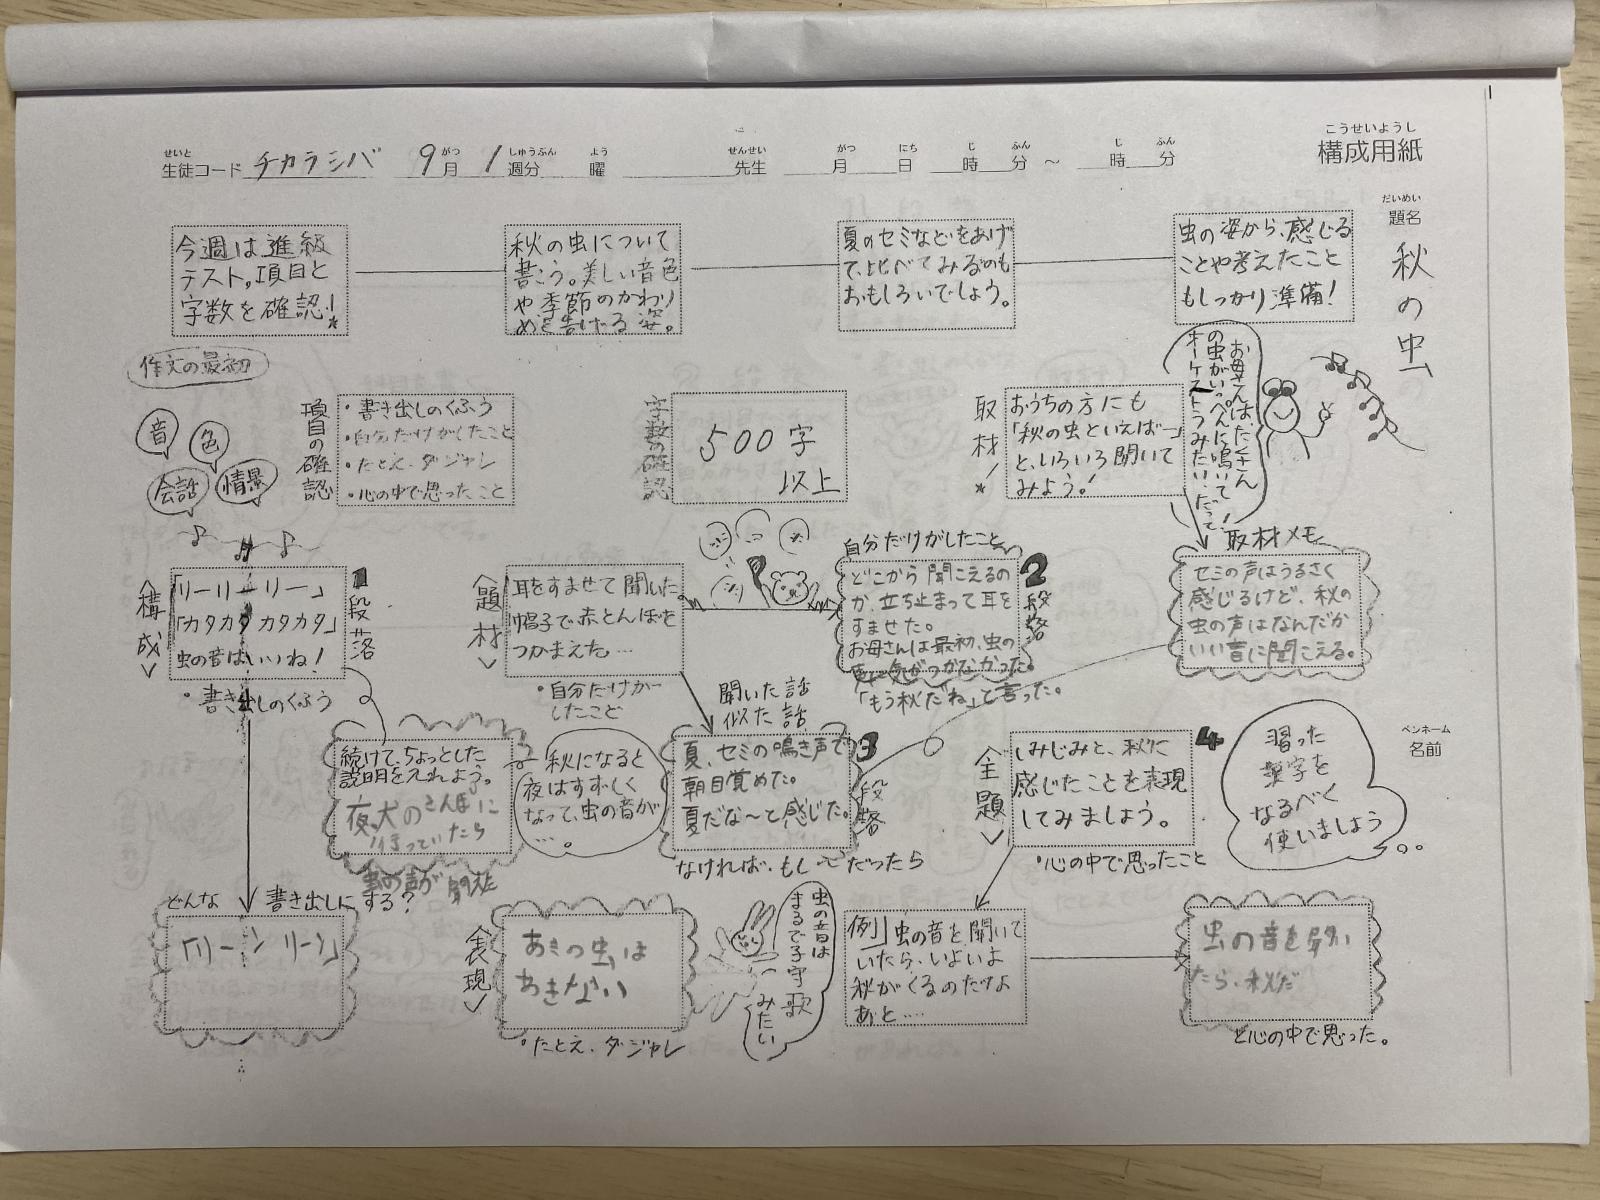 こうせいようし
構成用紙
せいと
生徒コード チカラシバ
9 がつ
月
1 しゅうぶん
週分
よう
曜
せんせい
先生
がつ
月
にち
日
じ
時
ふん
分
～
じ
時
ふん
分
だいめい
題名
秋の虫
虫の姿から、感じる
ことや考えたこと
もしっかり準備!
夏のセミなどをあげ
て、比べてみるのも
おもしろいでしょう。
秋の虫について
書こう。美しい音色
や季節のかわり
めを告げる姿。
今週は進級
テスト。項目と
字数を確認!
お母さんは、たくさん
の虫がいっぺんに鳴いて
オーケストラみたい、だって!
取材!
おうちの方にも
「秋の虫といえばー」
と、いろいろ聞いて
みよう!
字数の確認
500字
以上
項目の確認
・書き出しのくふう
・自分だけがしたこと
・たとえ、ダジャレ
・心の中で思ったこと
作文の最初
音
色
会話
情景
取材メモ
セミの声はうるさく
感じるけど、秋の
虫の声はなんだか
いい音に聞こえる。
2段落
自分だけがしたこと
どこから聞こえるの
か、立ち止まって耳を
すませた。
お母さんは最初、虫の
声に気がつかなかった。
「もう秋だね」と言った。
題材
耳をすませて聞いた
帽子で赤とんぼを
つかまえた…
・自分だけがー
したこと
1段落
構成
「リーリーリー」
「カタカタカタカタ」
虫の音はいいね!
・書き出しのくふう
ペンネーム
名前
習った
漢字を
なるべく
使いましょう
4
主題
しみじみと、秋に
感じたことを表現
してみましょう。
・心の中で思ったこと
3段落
聞いた話
似た話
夏、セミの鳴き声で
朝目覚めた。
夏だな～と感じた。
なければ、もし 〜だったら
秋になると
夜はすずしく
なって、虫の音が
…。
続けて、ちょっとした
説明をいれよう。
夜、犬のさんぽに
行っていたら
虫の声が 聞えた
どんな 書き出しにする?
「リーン リーン」
表現
あきの虫は
あきない
・たとえ、ダジャレ
虫の音は
まるで子守歌
みたい
例」虫の音を聞いて
いたら、いよいよ
秋がくるのだなよ
あと…
虫の音を聞い
たら、秋だ
と心の中で思った。